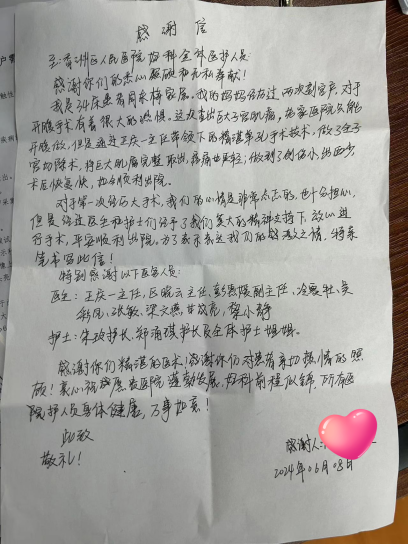 感谢信
至香洲区人民医院妇科全体医护人员:
感谢你们的悉心照顾和无私奉献!
我是34床患者周采梅家属。我的妈妈经历过两次剖宫产,对于
开腹手术有着很大的恐惧。这次查出巨大子宫肌瘤,
开腹做,但是通过王庆一主任带领下的精湛单孔手术技术,做了全子
宫切除术,将巨大肌瘤完整取出,做到了创伤小,出血少,
顺利出院。
对于第一次经历大手术,我们的心情是非常忐忑的,也十分担心,
但是经过医生和护士们给予了我们莫大的精神支持下,放心进
行手术,平安顺利出院。为了表示表达我们的感激之情,特来
笔书写此信!
特别感谢以下医务人员:
医生:王庆一主任、区晓云主任、副主任、
张敏、梁文燕、
护士:朱玫护长、护长及全体护士姐姐。
感谢你们精湛的医术,感谢你们对患者亲切热情的照
顾!衷心祝愿贵医院蓬勃发展,妇科前程似锦,所有医
院护人员身体健康,万事如意!
此致
敬礼!
感谢人:
2024年06月08日